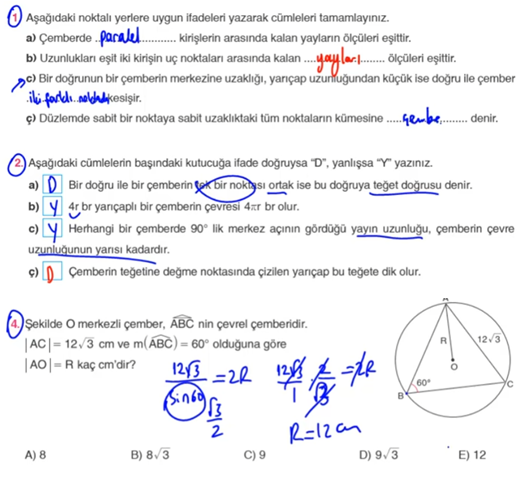 1. Aşağıdaki noktalı yerlere uygun ifadeleri yazarak cümleleri tamamlayınız.
a) Çemberde ..paralel............ kirişlerin arasında kalan yayların ölçüleri eşittir.
b) Uzunlukları eşit iki kirişin uç noktaları arasında kalan ....yayları........ ölçüleri eşittir.
c) Bir doğrunun bir çemberin merkezine uzaklığı, yarıçap uzunluğundan küçük ise doğru ile çember
iki farklı noktada kesişir.
ç) Düzlemde sabit bir noktaya sabit uzaklıktaki tüm noktaların kümesine .....çember........ denir.
2. Aşağıdaki cümlelerin başındaki kutucuğa ifade doğruysa "D", yanlışsa "Y" yazınız.
a) D Bir doğru ile bir çemberin tek bir noktası ortak ise bu doğruya teğet doğrusu denir.
b) Y 4r br yarıçaplı bir çemberin çevresi 4πr br olur.
c) Y Herhangi bir çemberde 90° lik merkez açının gördüğü yayın uzunluğu, çemberin çevre
uzunluğunun yarısı kadardır.
ç) D Çemberin teğetine değme noktasında çizilen yarıçap bu teğete dik olur.
4. Şekilde O merkezli çember, ABC nin çevrel çemberidir.
|AC| = 12√3 cm ve m(ABC) = 60° olduğuna göre
|AO| = R kaç cm'dir?
12√3 / sin60 = 2R
√3/2
12√3/1 · 2/√3 = 2R
R = 12 cm
A
R
12√3
O
60°
B
C
A) 8 B) 8√3 C) 9 D) 9√3 E) 12